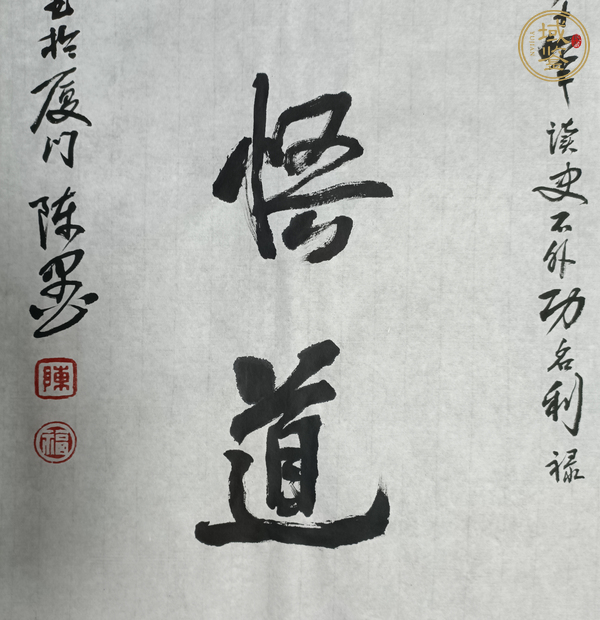 读史不外功名利禄
悟道
于於厦门 陈墨
陳
福
域鉴